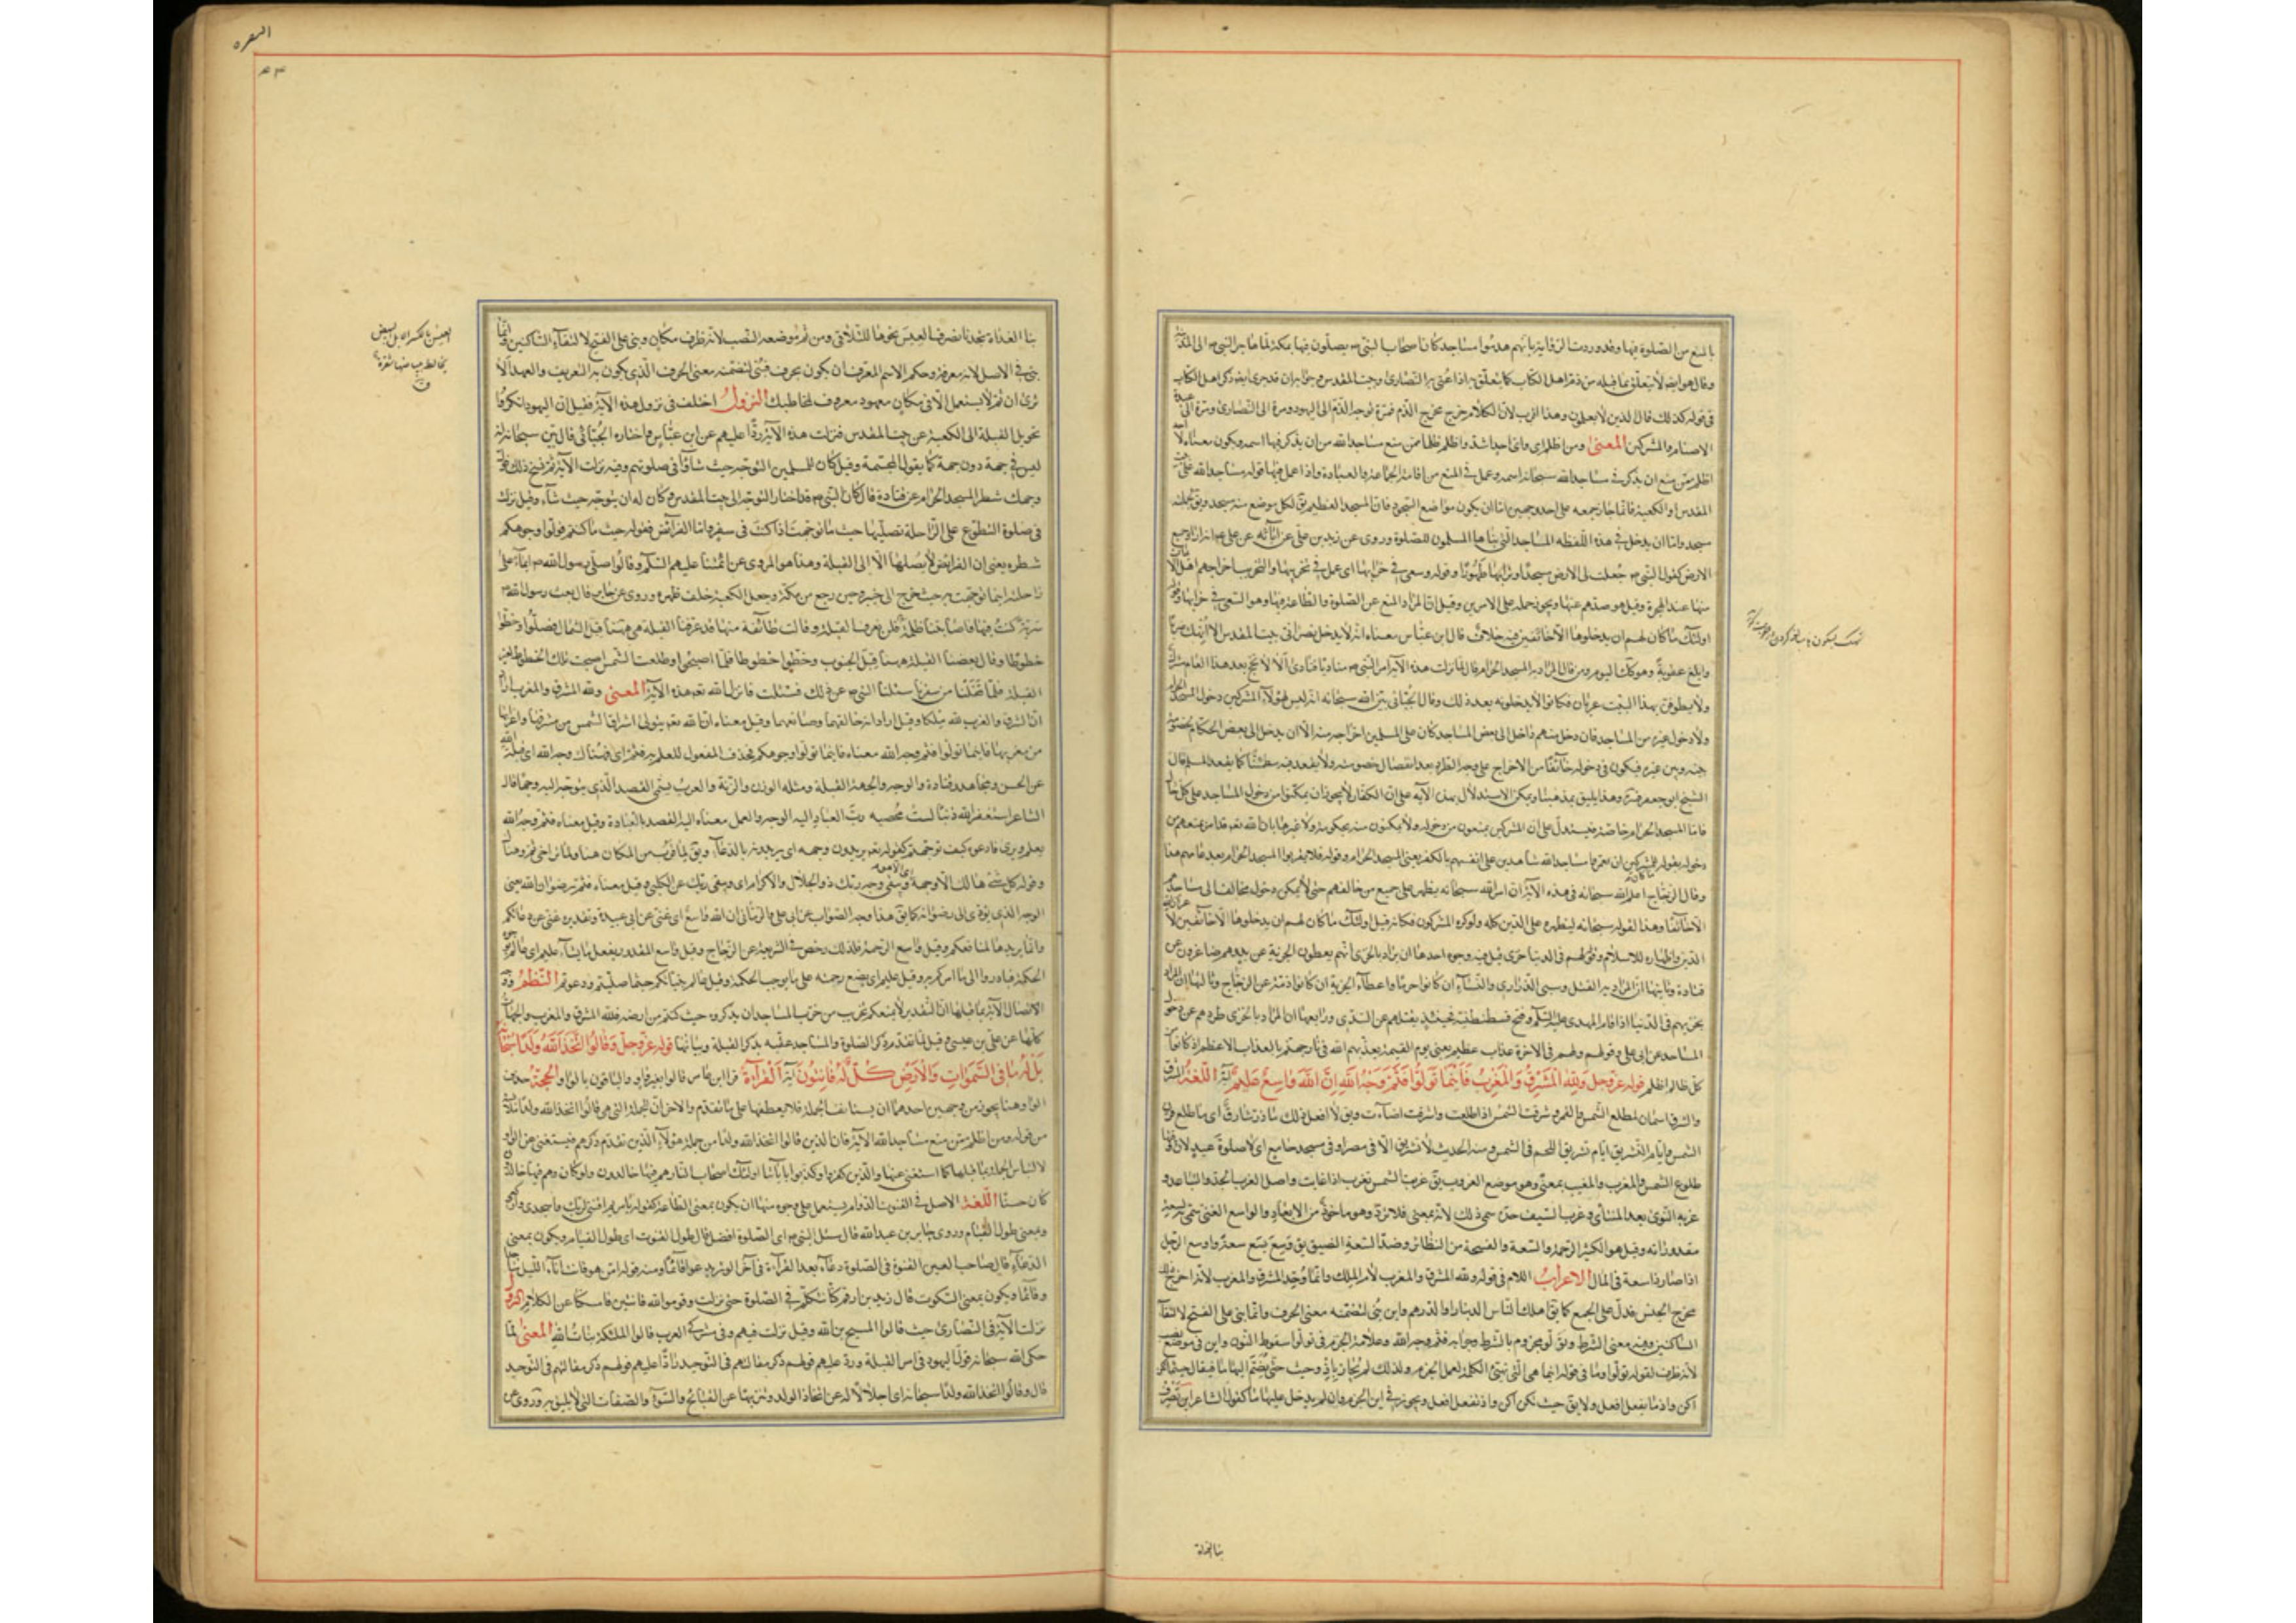 بالمنع من الصلوة فيها وقد وردت الرواية بانهم هدموا مساجد كان اصحاب النبي ص يصلون فيها بمكة لما هاجر النبي ص الى المدينة
وقال هو ايضا لا يتعلق بما قبله من ذم اهل الكتاب كما يتعلق به اذا عنى به النصارى وبيت المقدس وجوابه ان قد جرى ايضا ذكر اهل الكتاب
في قوله كذلك قال الذين لا يعلمون وهذا اقرب لان الكلام خرج مخرج الذم فمرة توجه الذم الى اليهود ومرة الى النصارى ومرة الى عبدة
الاصنام والمشركين المعنى ومن اظلم اي واي احد اشد واظلم ظلما ممن منع مساجد الله من ان يذكر فيها اسمه ويكون معناه لا
اظلم ممن منع ان يذكر في مساجد الله سبحانه اسمه وعمل في المنع من اقامة الجماعة والعبادة فيها
المقدس او الكعبة فانما جاز جمعه على احد وجهين اما ان يكون مواضع السجود فان المسجد العظيم يق لكل موضع منه مسجد ويق لجملته
مسجد واما ان يدخل في هذه اللفظه المساجد التي بناها المسلمون للصلوة وروى عن زيد بن علي عن ابائه عن علي ع انه اراد جميع
الارض كقول النبي ص جعلت لي الارض مسجدا وترابها طهورا وقوله وسعى في خرابها اي عمل في تخريبها والتخريب اخراجهم اهل الايمان
منها عند الهجرة وقيل هو صدهم عنها ويجوز حمله على الامرين وقيل ان المراد المنع عن الصلوة والطاعة فيها وهو السعي في خرابها وقوله
اولئك ما كان لهم ان يدخلوها الا خائفين فيه خلاف قال ابن عباس معناه انه لا يدخل نصراني بيت المقدس الا انهك ضربا
وابلغ عقوبة وهو كك اليوم ومن قال المراد به المسجد الحرام قال لما نزلت هذه الآية امر النبي ص مناديا فنادى الا لا يحج بعد هذا العام مشرك
ولا يطوفن بهذا البيت عريان فكانوا لا يدخلونه بعد ذلك وقال الجبائي بين الله سبحانه انه ليس لهؤلاء المشركين دخول المسجد الحرام
ولا دخول غيره من المساجد فان دخل منهم داخل الى بعض المساجد كان على المسلمين اخراجه منه الا ان يدخل الى بعض الحكام لخصومة
بينه وبين غيره فيكون في دخوله خائفا من الاخراج على وجه الطرد بعد انفصال خصومته ولا يقعد فيه مطمئنا كما يقعد المسلم قال
الشيخ ابو جعفر قده وهذا يليق بمذهبنا ويمكن الاستدلال بهذه الآية على ان الكفار لا يجوز ان يمكنوا من دخول المساجد على كل حال
فاما المسجد الحرام خاصة فيستدل على ان المشركين يمنعون من دخوله ولا يمكنون منه بحكومة ولا غيرها بان الله تعه قد امر بمنعهم من
دخوله بقوله ما كان للمشركين ان يعمروا مساجد الله شاهدين على انفسهم بالكفر يعني المسجد الحرام وقوله فلا يقربوا المسجد الحرام بعد عامهم هذا
وقال الزجاج اعلم الله سبحانه في هذه الآية ان امر الله سبحانه يظهر على جميع من خالفهم حتى لا يمكن دخول مخالف الى مساجدهم
الا خائفا وهذا لقوله سبحانه ليظهره على الدين كله ولو كره المشركون فكانه قيل اولئك ما كان لهم ان يدخلوها الا خائفين لاعزاز
الدين واظهاره للاسلام وقوله لهم في الدنيا خزي قيل فيه وجوه احدها ان يراد بالخزي انهم يعطون الجزية عن يد وهم صاغرون عن
قتادة وثانيها ان المراد به القتل وسبي الذراري والنساء ان كانوا حربا واعطاء الجزية ان كانوا ذمة عن الزجاج وثالثها ان المراد
بخزيهم في الدنيا اذا قام المهدي عليه السلام وفتح قسطنطنية فحينئذ يقتلهم عن السدي ورابعها ان المراد بالخزي طردهم عن دخول
المساجد عن ابي علي وقوله ولهم في الاخرة عذاب عظيم يعني يوم القيمة يعذبهم الله في نار جهنم بالعذاب الاعظم اذ كانوا من
كل ظالم اظلم قوله عز وجل ولله المشرق والمغرب فاينما تولوا فثم وجه الله ان الله واسع عليم آية اللغة المشرق
والشرق اسمان لمطلع الشمس والقمر وشرقت الشمس اذا طلعت واشرقت اضاءت ويق لا افعل ذلك ما ذر شارق اي ما طلع قرن
الشمس وايام التشريق ايام تشريق اللحم في الشمس ومنه الحديث لا تشريق الا في مصر او في مسجد جامع اي لا صلوة عيد لان وقتها
طلوع الشمس والمغرب والمغيب بمعنى وهو موضع الغروب يق غربت الشمس تغرب اذا غابت واصل الغرب الحد والتباعد و
غربة النوى بعد المنتأى وغرب السيف حده سمي ذلك لانه يمضي فلا يرد وهو ماخوذ من الابعاد والواسع الغني سمي به لسعة
مقدوراته وقيل هو الكثير الرحمة والسعة والفسحة من النظائر وضد السعة الضيق يق وسع يسع سعة واوسع الرجل
اذا صار ذا سعة في المال الاعراب اللام في قوله ولله المشرق والمغرب لام الملك وانما وحد المشرق والمغرب لانه اخرج ذلك
مخرج الجنس فدل على الجمع كما يق اهلك الناس الدينار والدرهم واين بني لتضمنه معنى الحرف وانما بني على الفتح لالتقاء
الساكنين وفيه معنى الشرط وتولوا مجزوم بالشرط وجوابه فثم وجه الله وعلامة الجزم في تولوا سقوط النون واين في موضع نصب
لانه ظرف لقوله تولوا وما في قوله اينما هي التي تهيئ الكلمة لعمل الجزم ولذلك لم يجاز باذ وحيث حتى يضم اليها ما فيقال حيثما تكن
اكن واذ ما تفعل افعل ولا يق حيث تكن اكن واذ تفعل افعل ويجوز في اين الجزم وان لم يدخل عليها ما كقول الشاعر اين تضرب
بنا العداة
البقره
بنا العداة تجدنا نصرف العيس نحوها للتلاقي ومن ثم موضعه النصب لانه ظرف مكان وبني على الفتح لالتقاء الساكنين وانما
بني في الاصل لانه معرفة وحكم الاسم المعرف ان يكون بحرف فبني لتضمنه معنى الحرف الذي يكون به التعريف والعهد الا
ترى ان ثم لا يستعمل الا في مكان معهود معروف لمخاطبك النزول اختلف في نزول هذه الآية فقيل ان اليهود انكروا
تحويل القبلة الى الكعبة عن بيت المقدس فنزلت هذه الآية ردا عليهم عن ابن عباس واختاره الجبائي قال بين سبحانه انه
ليس في جهة دون جهة كما يقول المجسمة وقيل كان للمسلمين التوجه حيث شاؤا في صلوتهم وفيه نزلت الآية ثم نسخ ذلك بقوله فول
وجهك شطر المسجد الحرام عن قتادة قال كان النبي ص قد اختار التوجه الى بيت المقدس وكان له ان يتوجه حيث شاء وقيل نزلت
في صلوة التطوع على الراحلة تصليها حيث ما توجهت اذا كنت في سفر واما الفرائض فقوله حيث ما كنتم فولوا وجوهكم
شطره يعني ان الفرائض لا يصلها الا الى القبلة وهذا هو المروي عن ائمتنا عليهم السلام وقالوا صلى رسول الله ص ايماء على
راحلته اينما توجهت به حيث خرج الى خيبر وحين رجع من مكة وجعل الكعبة خلف ظهره وروى عن جابر قال بعث رسول الله ص
سرية كنت فيها فاصابتنا ظلمة فلم نعرف القبلة وقالت طائفة منها قد عرفنا القبلة هي هيهنا قبل الشمال فصلوا وخطوا
خطوطا وقال بعضنا القبلة هيهنا قبل الجنوب وخطوا خطوطا فلما اصبحوا وطلعت الشمس اصبحت تلك الخطوط لغير
القبلة فلما قفلنا من سفرنا سئلنا النبي ص عن ذلك فسكت فانزل الله تعه هذه الآية المعنى ولله المشرق والمغرب اراد
ان المشرق والمغرب لله ملكا وقيل اراد انه خالقهما وصانعهما وقيل معناه ان الله تعه يتولى اشراق الشمس من مشرقها واغرابها
من مغربها فاينما تولوا فثم وجه الله معناه فاينما تولوا وجوهكم فحذف المفعول للعلم به فثم اي فهناك وجه الله اي قبلة الله
عن الحسن ومجاهد وقتادة والوجه والجهة القبلة ومثله الوزن والزنة والعرب يسمى القصد الذي يتوجه اليه وجها قال
الشاعر استغفر الله ذنبا لست محصيه رب العباد اليه الوجه والعمل معناه اليه القصد بالعبادة وقيل معناه فثم وجه الله
يعلم ويرى فادعوه كيف توجهتم كقوله تعه يريدون وجهه اي يريدونه بالدعاء ويق لما قرب من المكان هنا ولما تراخى ثم وهناك
وقوله كل شئ هالك الا وجهه اي الا هو ويبقى وجه ربك ذو الجلال والاكرام اي ويبقى ربك عن الكلبي وقيل معناه فثم رضوان الله يعني
الوجه الذي يؤدي الى رضوانه كما يق هذا وجه الصواب عن ابي علي والرماني ان الله واسع اي غني عن ابي عبيدة وتقديره غني عن طاعتكم
وانما يريدها لمنافعكم وقيل واسع الرحمة فلذلك رخص في الشريعة عن الزجاج وقيل واسع المقدور يفعل ما يشاء عليم اي عالم بوجوه
الحكمة فبادروا الى ما امركم به وقيل عليم اين يضع رحمته على ما يوجب الحكمة وقيل عالم بنياتكم حيثما صليتم ودعوتم النظم وجه
الاتصال الآية بما قبلها ان التقدير لا يمنعكم تخريب من خرب المساجد ان تذكروه حيث كنتم من ارضه فلله المشرق والمغرب والجهات
كلها عن علي بن عيسى وقيل لما تقدم ذكر الصلوة والمساجد عقبه بذكر القبلة وبيانها قوله عز وجل وقالوا اتخذ الله ولدا سبحانه
بل له ما في السموات والارض كل له قانتون آية القراءة قرأ ابن عامر قالوا بغير واو والباقون بالواو الحجة حذف
الواو هنا يجوز من وجهين احدهما ان يستانف الجملة فلا يعطفها على ما تقدم والاخر ان الجملة التي هي قالوا اتخذ الله ولدا ملابسة
من قوله ومن اظلم ممن منع مساجد الله الآية فان الذين قالوا اتخذ الله ولدا من جملة هؤلاء الذين تقدم ذكرهم فيستغنى عن الواو
لالتباس الجملة بما قبلها كما استغنى عنها والذين كفروا وكذبوا باياتنا اولئك اصحاب النار هم فيها خالدون ولو كان وهم فيها خالدون
كان حسنا اللغة الاصل في القنوت الدوام ويستعمل على وجوه منها ان يكون بمعنى الطاعة كقوله يا مريم اقنتي لربك واسجدي واركعي
وبمعنى طول القيام وروى جابر بن عبد الله قال سئل النبي ص اي الصلوة افضل قال طول القنوت اي طول القيام ويكون بمعنى
الدعاء قال صاحب العين القنوت في الصلوة دعاء بعد القراءة في آخر الوتر يدعو قائما ومنه قوله امن هو قانت اناء الليل ساجدا
وقائما ويكون بمعنى السكوت قال زيد بن ارقم كنا نتكلم في الصلوة حتى نزلت وقوموا لله قانتين فامسكنا عن الكلام النزول
نزلت الآية في النصارى حيث قالوا المسيح بن الله وقيل نزلت فيهم وفي مشركي العرب قالوا الملئكة بنات الله المعنى لما
حكى الله سبحانه قول اليهود في امر القبلة ورد عليهم قولهم ذكر مقالتهم في التوحيد رادا عليهم قولهم ذكر مقالتهم في التوحيد
قال وقالوا اتخذ الله ولدا سبحانه اي اجلالا له عن اتخاذ الولد وتنزيها عن القبائح والسوء والصفات التي لا يليق به وروى عن
العيس بالكسر الابل البيض
يخالط بياضها شقرة
ق